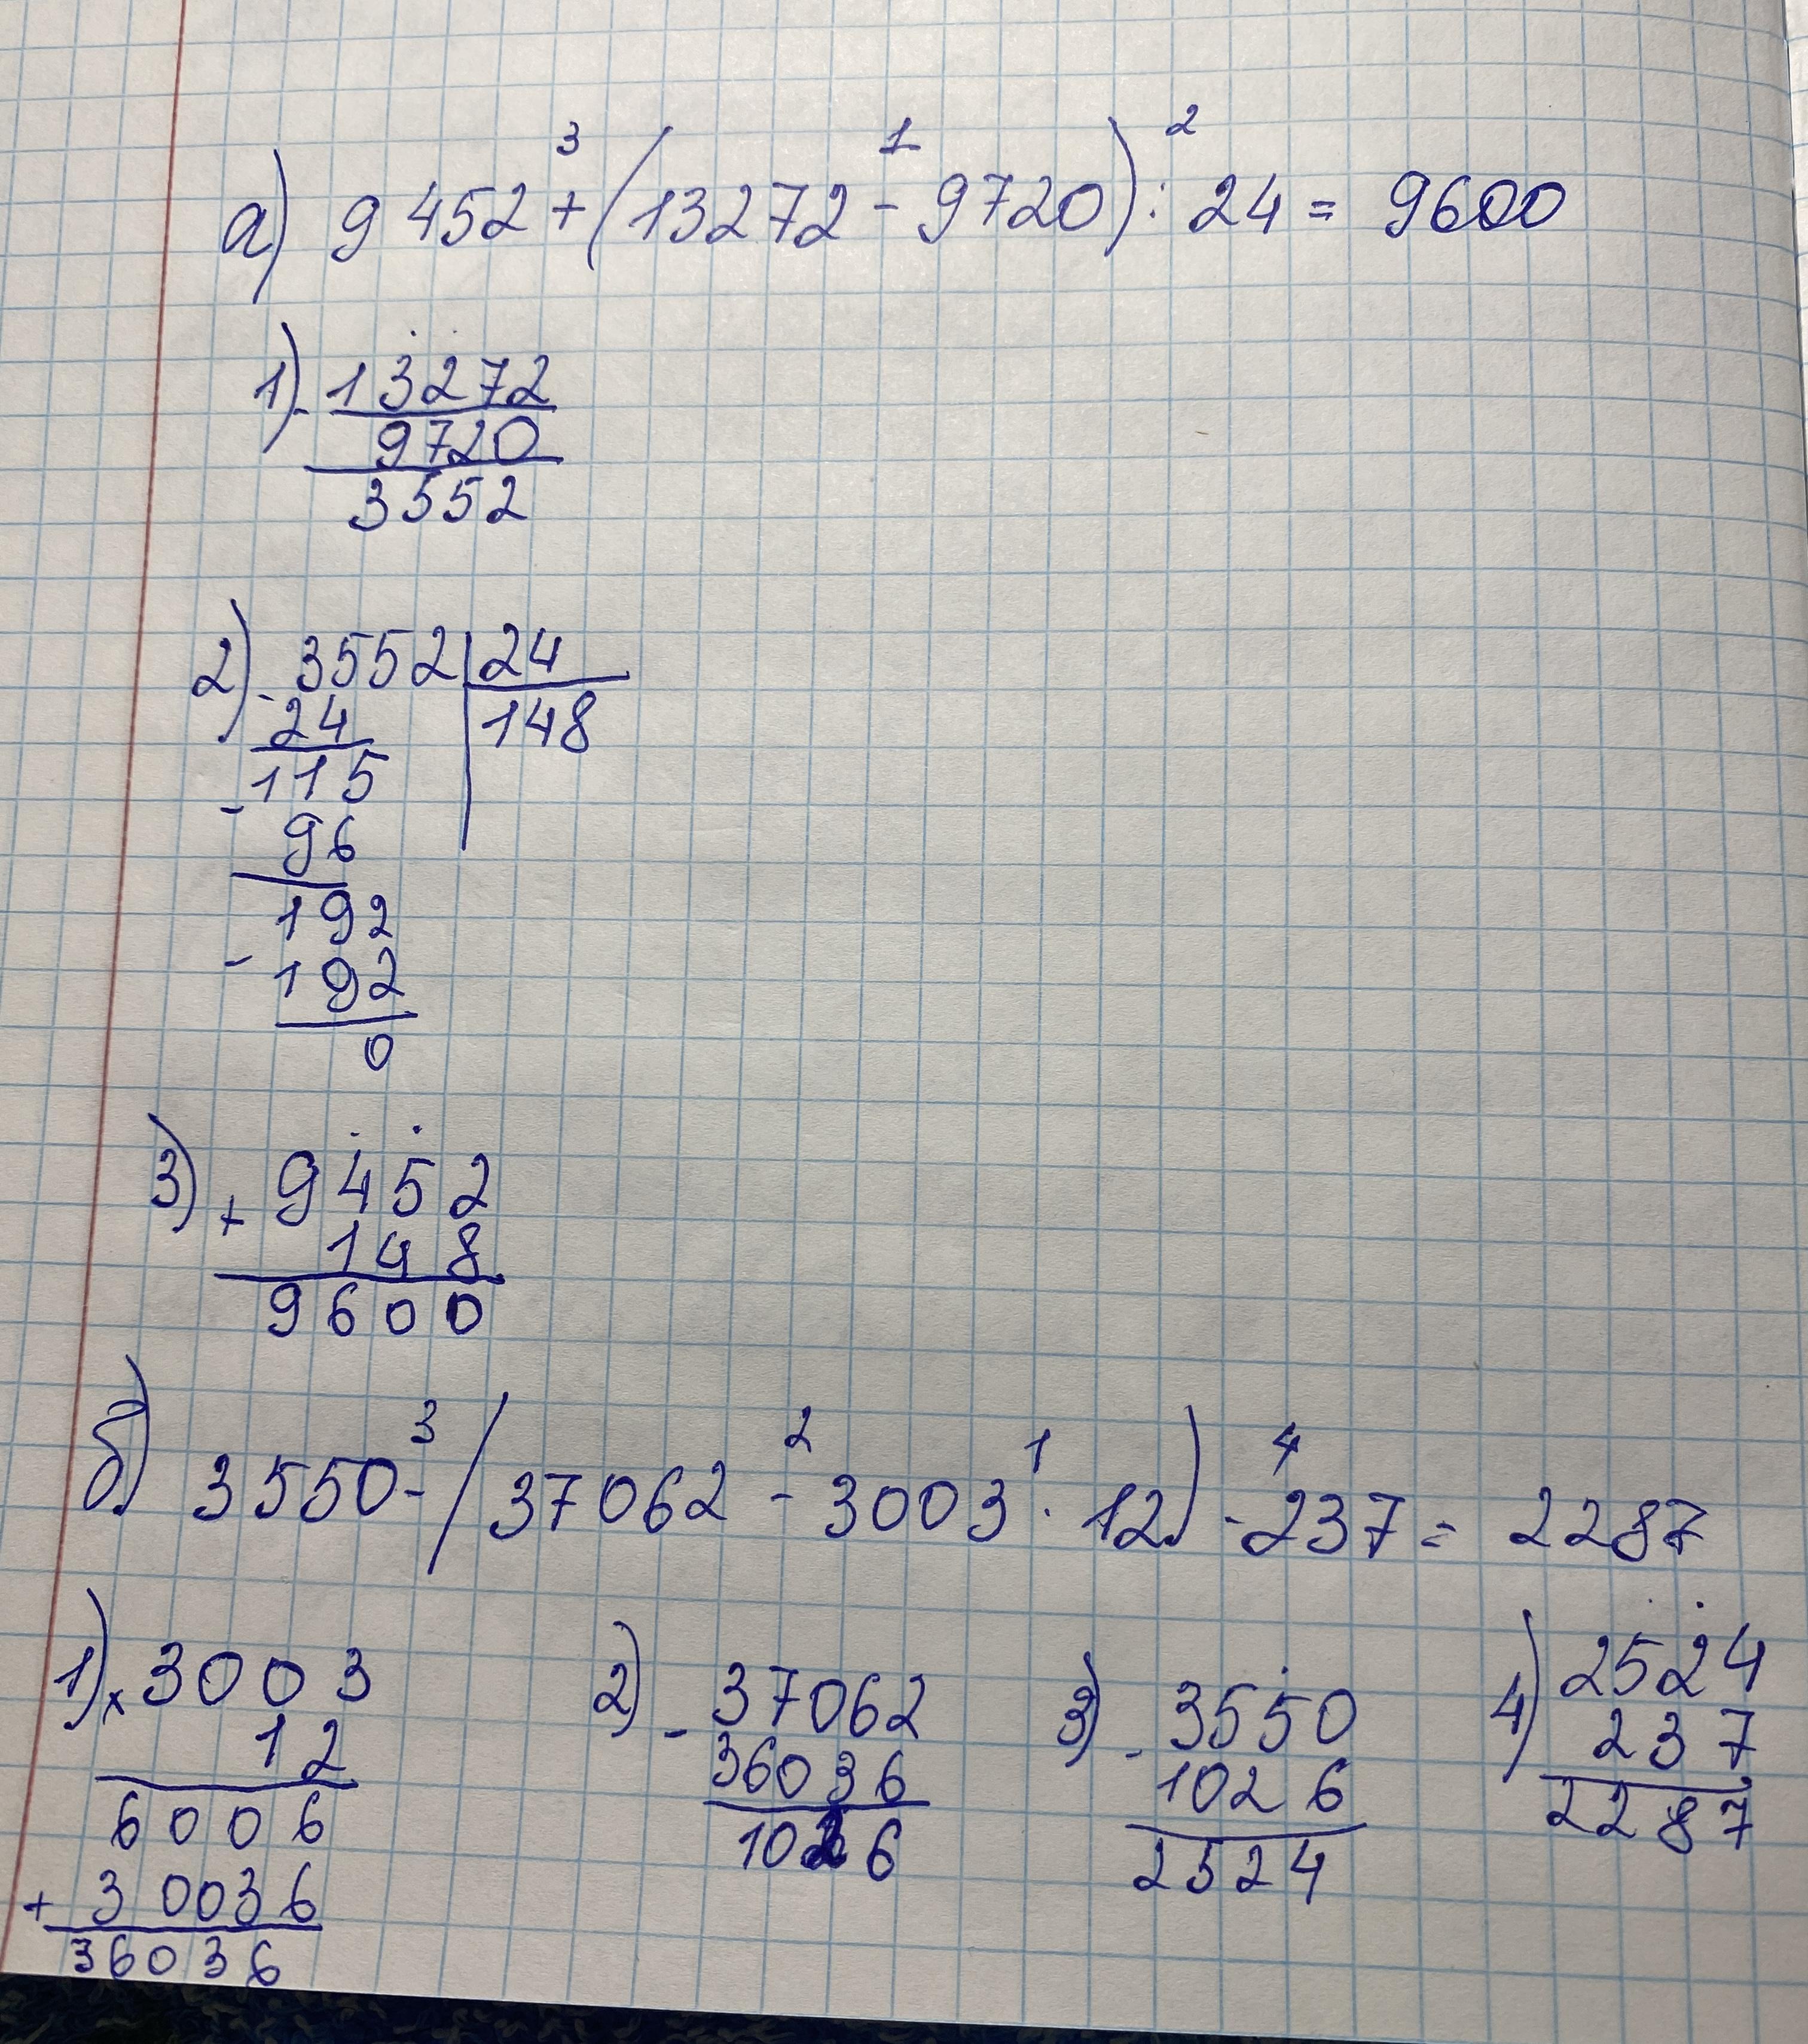 3 1 2
а) 9452 + (13272 - 9720) : 24 = 9600
1) - 13272
9720
3552
2) - 3552 | 24
24 | 148
115
- 96
192
- 192
0
3) + 9452
148
9600
3 2 1 4
б) 3550 - (37062 - 3003 · 12) - 237 = 2287
1) × 3003
12
6006
+ 30036
36036
2) - 37062
36036
1026
3) - 3550
1026
2524
4) 2524
237
2287